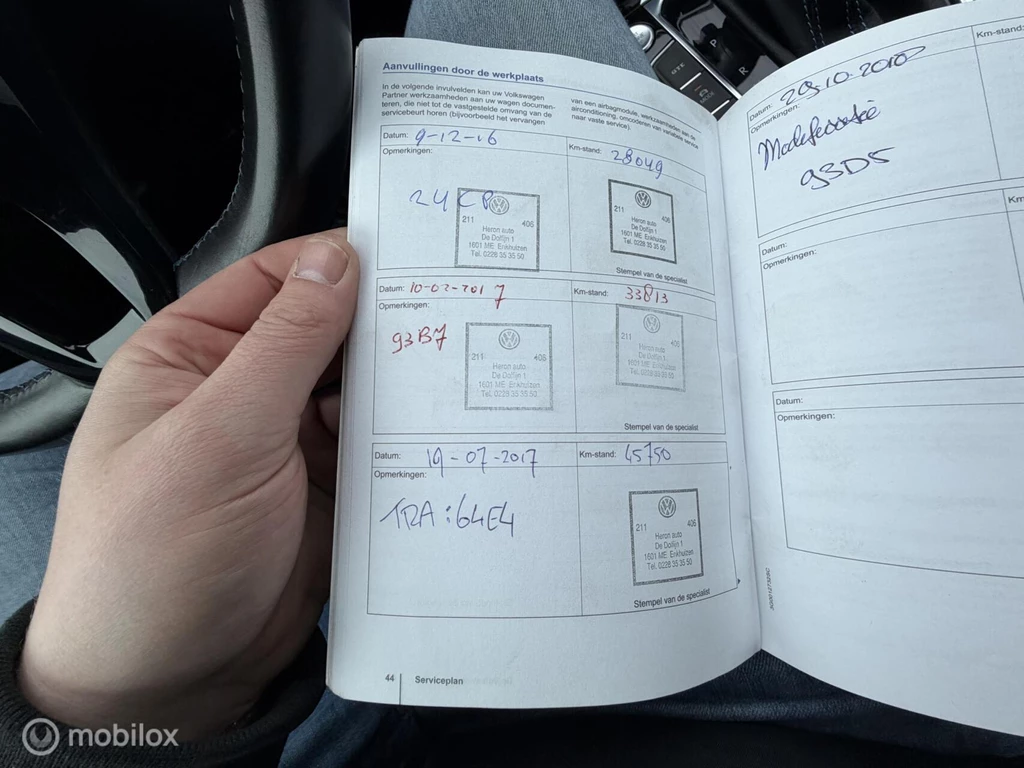 Aanvullingen door de werkplaats
In de volgende invulvelden kan uw Volkswagen
Partner werkzaamheden aan uw wagen documen-
teren, die niet tot de vastgestelde omvang van de
servicebeurt horen (bijvoorbeeld het vervangen
van een airbagmodule, werkzaamheden aan de
airconditioning, omcoderen van variabele service
naar vaste service).
Datum: 9-12-16
Km-stand: 28049
Opmerkingen:
24CP
211 406
Heron auto
De Dolfijn 1
1601 ME Enkhuizen
Tel. 0228 35 35 50
211 406
Heron auto
De Dolfijn 1
1601 ME Enkhuizen
Tel. 0228 35 35 50
Stempel van de specialist
Datum: 10-02-2017
Km-stand: 33813
Opmerkingen:
93B7
211 406
Heron auto
De Dolfijn 1
1601 ME Enkhuizen
Tel. 0228 35 35 50
211 406
Heron auto
De Dolfijn 1
1601 ME Enkhuizen
Tel. 0228 35 35 50
Stempel van de specialist
Datum: 19-07-2017
Km-stand: 45750
Opmerkingen:
TRA:64E4
211 406
Heron auto
De Dolfijn 1
1601 ME Enkhuizen
Tel. 0228 35 35 50
Stempel van de specialist
44 Serviceplan
Km-stand:
Datum:
Opmerkingen:
93D5
Datum:
Km
Opmerkingen:
Datum:
Opmerkingen:
P
R
GTE
MODE
mobilox